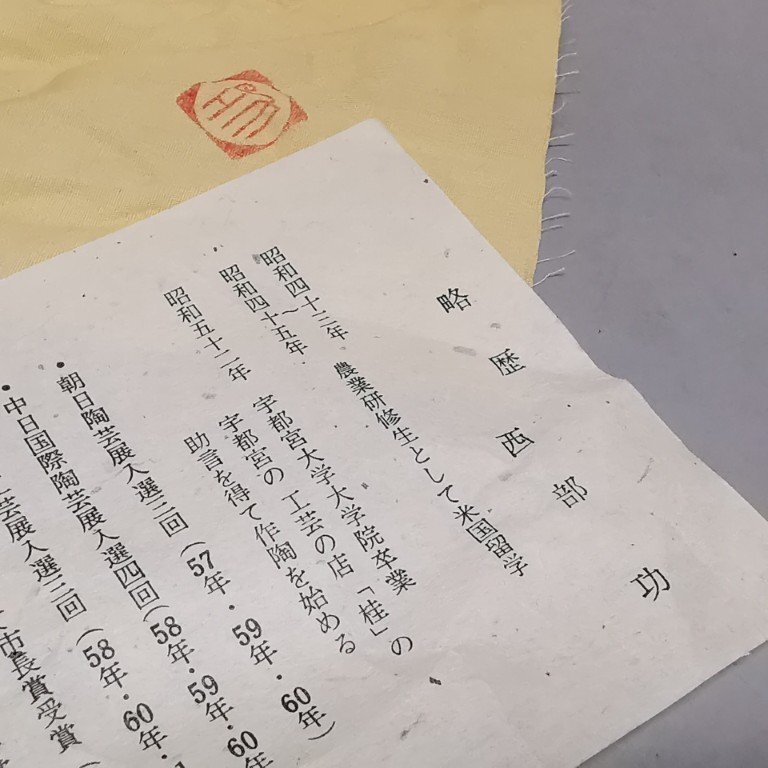 略歴 西部 功
昭和四十三年～
昭和四十五年 農業研修生として米国留学
昭和五十二年 宇都宮大学大学院卒業
宇都宮の工芸の店「桂」の
助言を得て作陶を始める
・朝日陶芸展入選三回(57年・59年・60年)
・中日国際陶芸展入選四回(58年・59年・60
芸展入選三回(58年・60年・
市長賞受賞